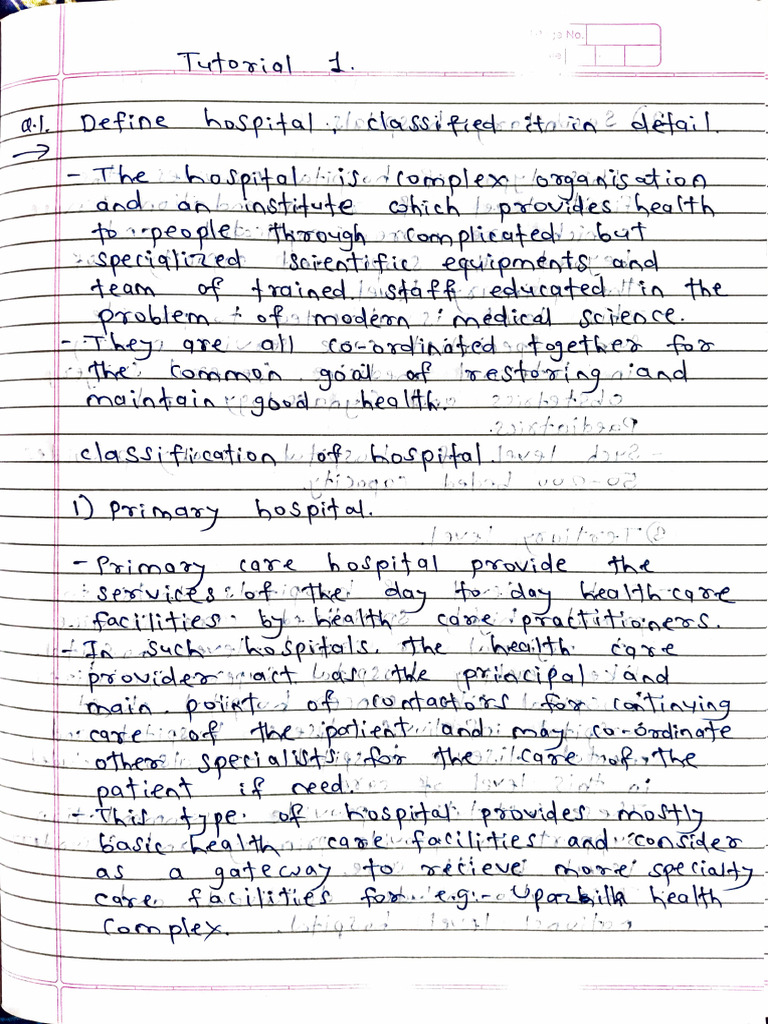 No.
Tutorial 1.
Q.1. Define hospital, classified it in detail.
→
- The hospital is complex organisation
and an institute which provides health
to people through complicated but
specialized scientific equipments and
team of trained staff educated in the
problem of modern medical science.
- They are all co-ordinated together for
the common goal of restoring and
maintain good health.
classification of hospital.
1) Primary hospital.
- Primary care hospital provide the
services of the day to day health care
facilities by health care practitioners.
- In such hospitals, the health care
provider act as the principal and
main point of contactors for continying
care of the patient and may co-ordinate
other specialists for the care of the
patient if need.
- This type of hospital provides mostly
basic health care facilities and consider
as a gateway to recieve more specialty
care facilities for e.g:- health
complex.